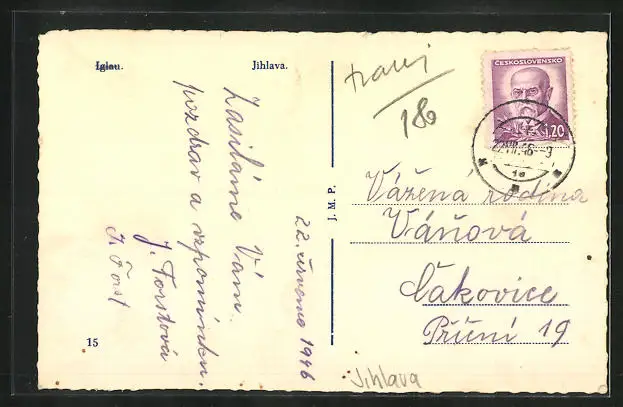 Iglau. Jihlava.
Zasíláme Vám
pozdrav a vzpomínku.
J. Forstová
J. Forst
22. června 1946
15
J. M. P.
186
ČESKOSLOVENSKO
1.20
Vážená rodina
Váňová
Čakovice
Příční 19
Jihlava